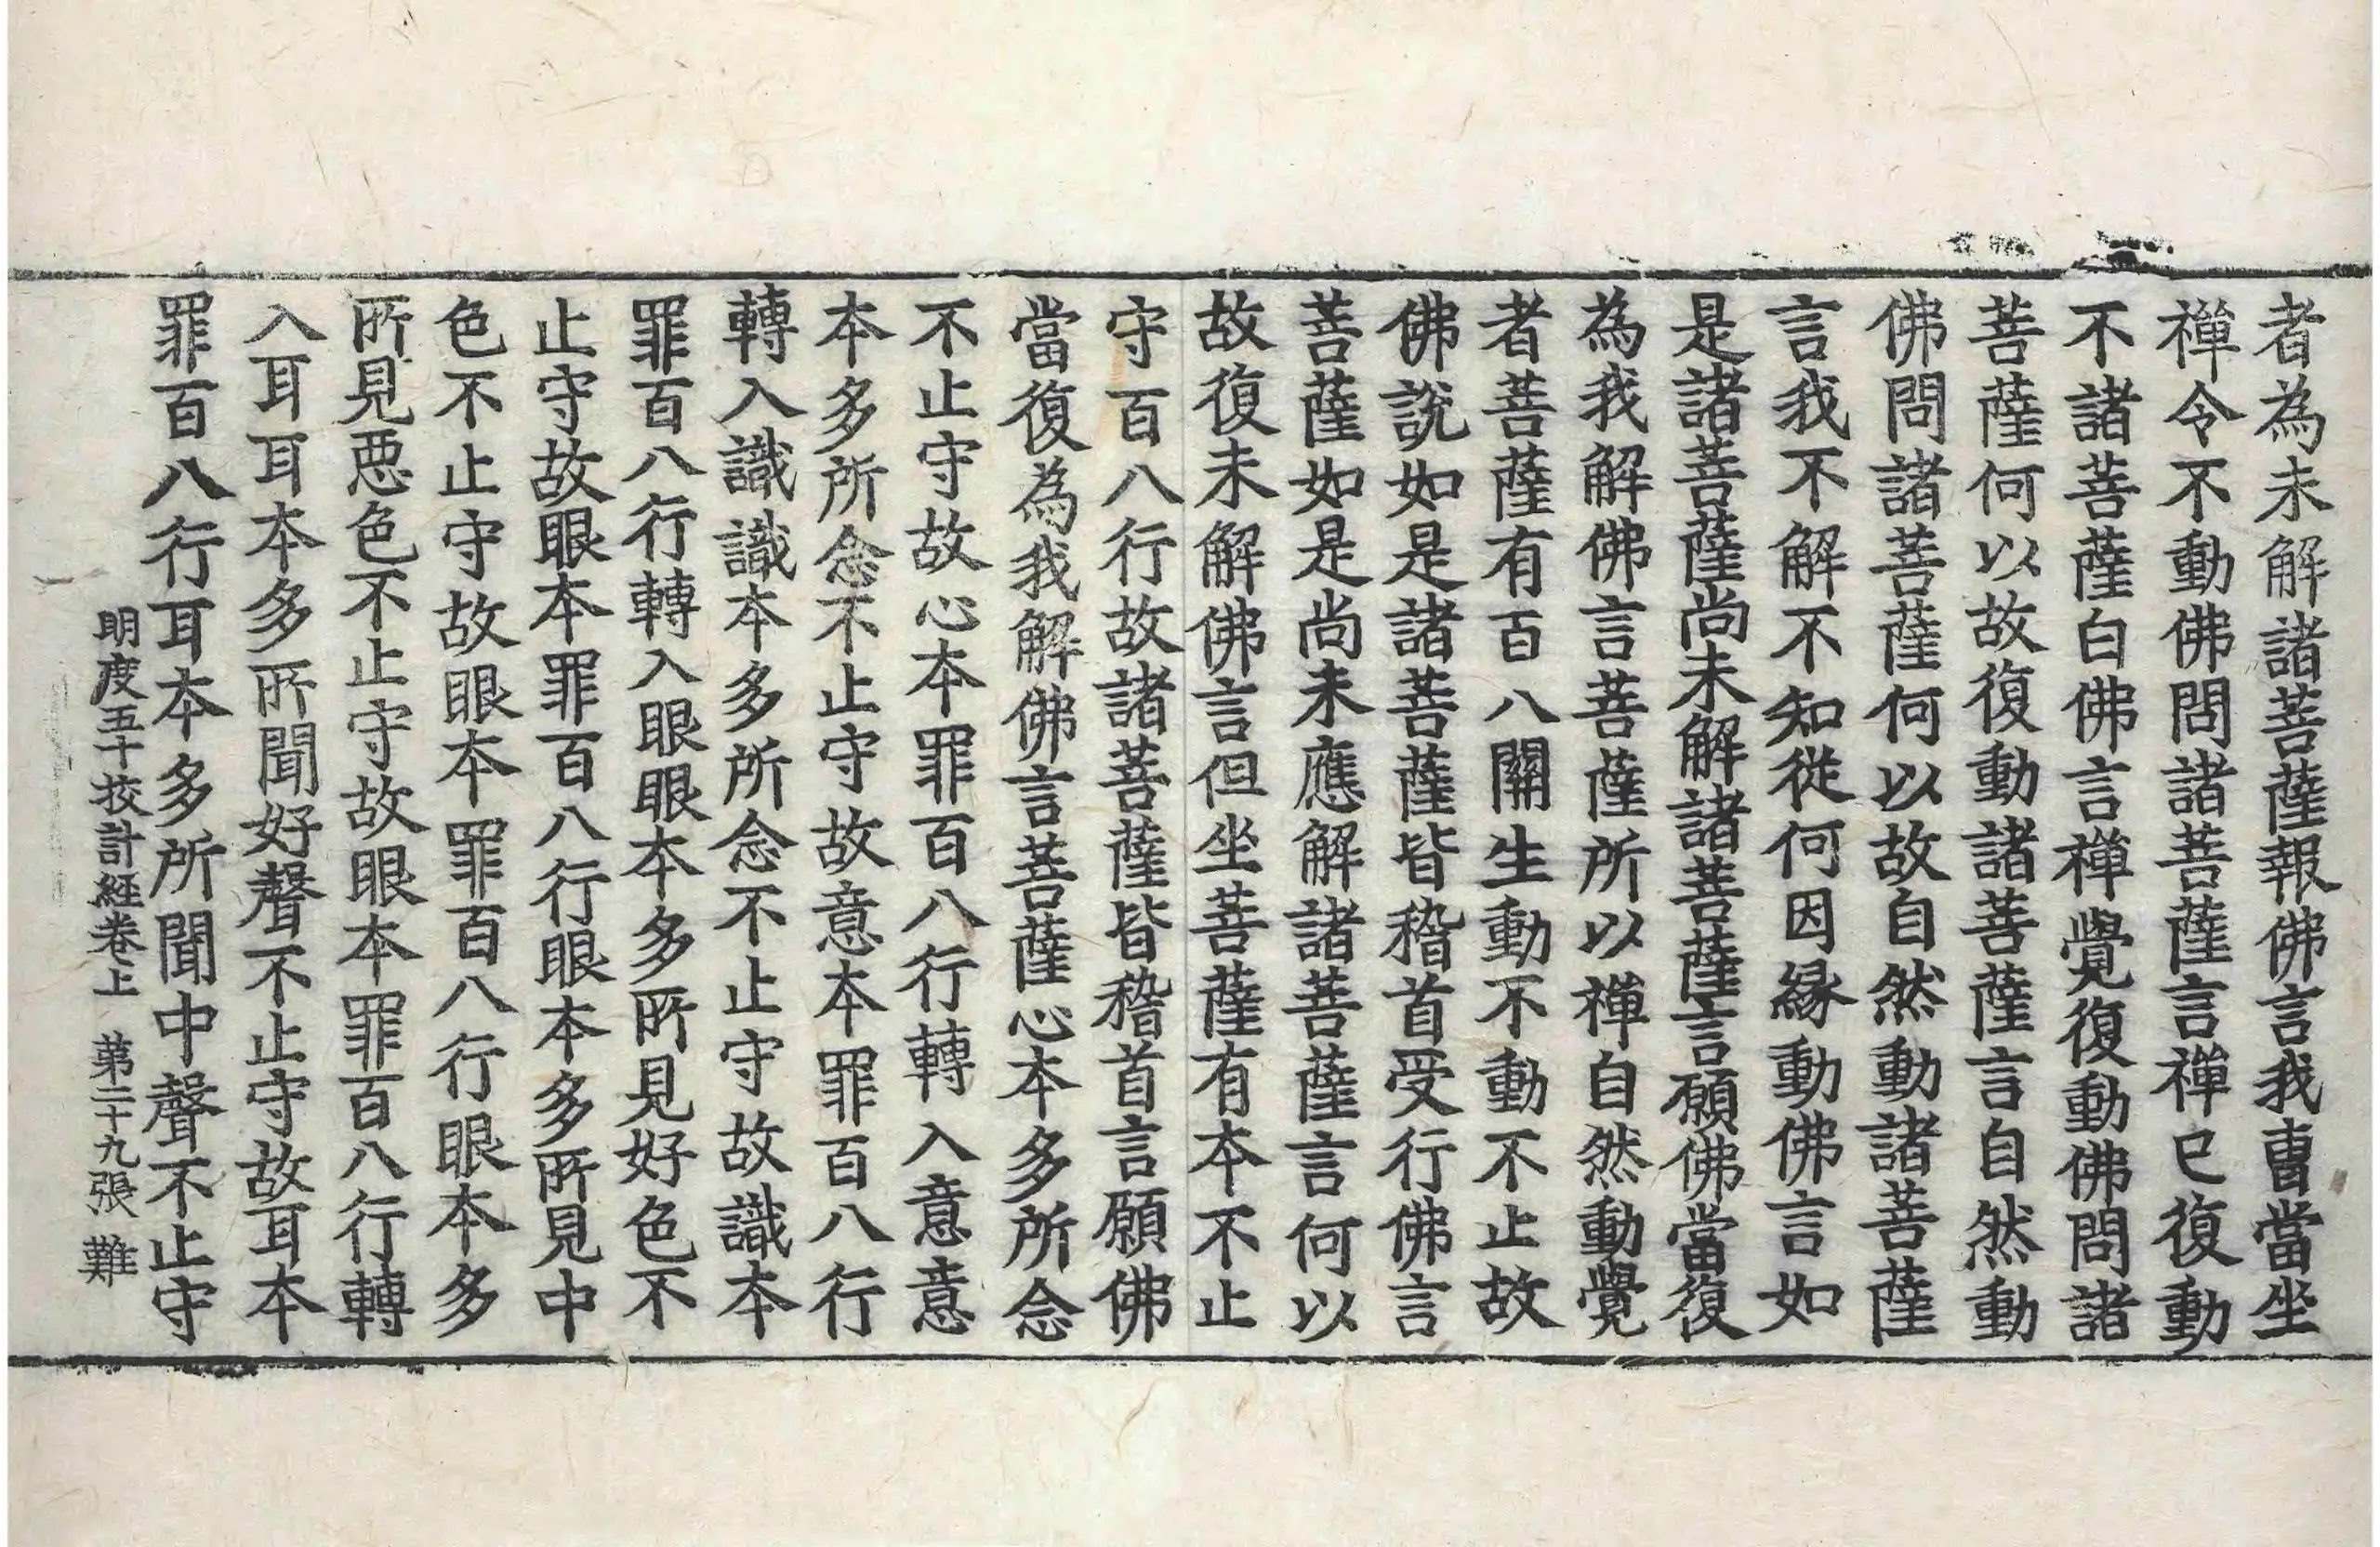 者為未解諸菩薩報佛言我曺當坐
禪令不動佛問諸菩薩言禪已復動
不諸菩薩白佛言禪覺復動佛問諸
菩薩何以故復動諸菩薩言自然動
佛問諸菩薩何以故自然動諸菩薩
言我不解不知從何因緣動佛言如
是諸菩薩尚未解諸菩薩言願佛當復
為我解佛言菩薩所以禪自然動覺
者菩薩有百八關生動不動不止故
佛說如是諸菩薩皆稽首受行佛言
菩薩如是尚未應解諸菩薩言何以
故復未解佛言但坐菩薩有本不止
守百八行故諸菩薩皆稽首言願佛
當復為我解佛言菩薩心本多所念
不止守故心本罪百八行轉入意意
本多所念不止守故意本罪百八行
轉入識識本多所念不止守故識本
罪百八行轉入眼眼本多所見好色不
止守故眼本罪百八行眼本多所見中
色不止守故眼本罪百八行眼本多
所見惡色不止守故眼本罪百八行轉
入耳耳本多所聞好聲不止守故耳本
罪百八行耳本多所聞中聲不止守
明度五十挍計経卷上 第二十九張 難